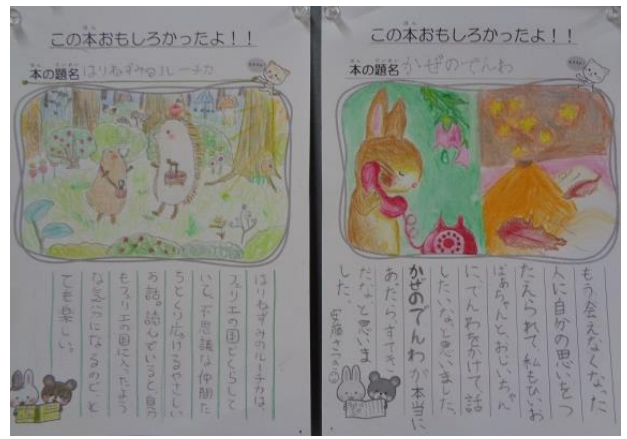 この本おもしろかったよ！！
本の題名 はりねずみのルーチカ
はりねずみのルーチカは、
フェリエの国でくらして
いて、不思議な仲間た
ちとくり広げるやさしい
お話。読んでいると自分
もフェリエの国に入ったよう
な気分になるので、と
ても楽しい。
この本おもしろかったよ！！
本の題名 かぜのでんわ
もう会えなくなった
人に自分の思いをつ
たえられて、私もひいお
ばあちゃんとおじいちゃん
に、でんわをかけて、話
したいなと思いました。
かぜのでんわが本当に
あったら、すてき
だなと思いま
した。